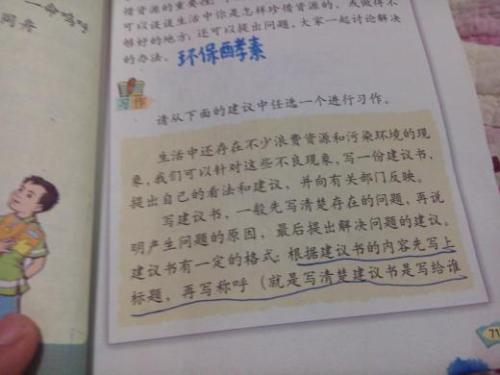 一命呜呼
同舟
惜资源的重要性。
可以谈谈生活中你是怎样珍惜资源的,或做得不
够好的地方;还可以提出问题,大家一起讨论解决
的办法。环保酵素
习作
请从下面的建议中任选一个进行习作。
生活中还存在不少浪费资源和污染环境的现
象,我们可以针对这些不良现象,写一份建议书,
提出自己的看法和建议,并向有关部门反映。
写建议书,一般先写清楚存在的问题,再说
明产生问题的原因,最后提出解决问题的建议。
建议书有一定的格式:根据建议书的内容先写上
标题,再写称呼(就是写清楚建议书是写给谁
71